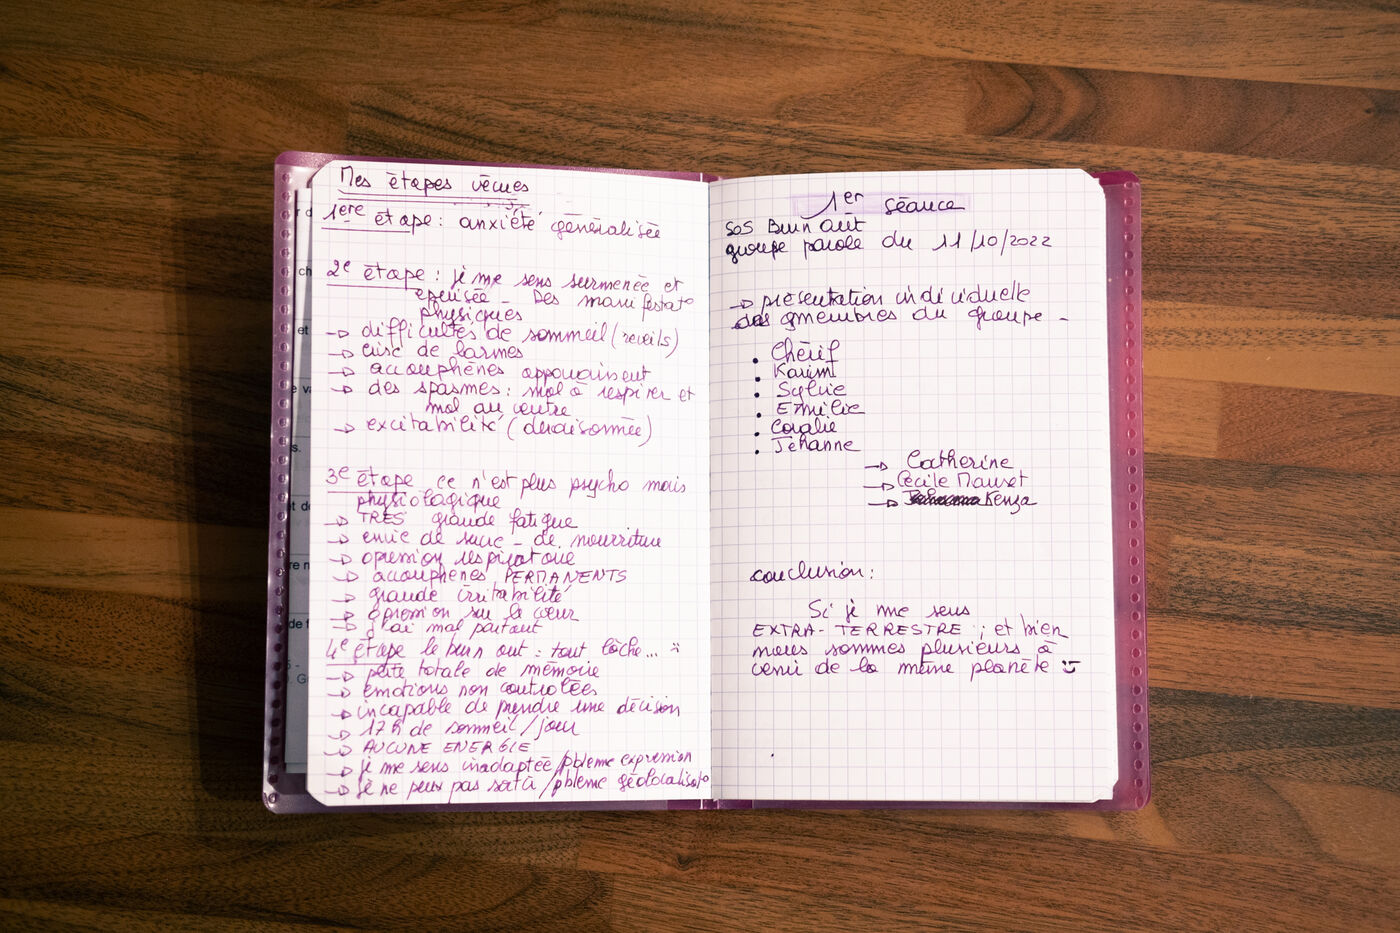 Mes étapes vécues
1ere étape : anxiété généralisée
2e étape : je me sens surmenée et
épuisée - Des manifestato
physiques
→ difficultés de sommeil (reveils)
→ crise de larmes
→ acouphènes apparaissent
→ des spasmes : mal à respirer et
mal au ventre
→ excitabilité (déraisonnée)
3e étape ce n'est plus psycho mais
physiologique
→ TRES grande fatigue
→ envie de sucre - de nourriture
→ opression respiratoire
→ acouphènes PERMANENTS
→ grande irritabilité
→ opression sur le coeur
→ j'ai mal partout
4e étape le burn out : tout lâche...
→ perte totale de mémoire
→ émotions non controlées
→ incapable de prendre une décision
→ 17h de sommeil / jour
→ AUCUNE ENERGIE
→ je me sens inadaptée / pblème expression
→ je ne peux pas sortir / pblème géolocalisato
1er séance
SOS Burn aut
groupe parole du 11/10/2022
→ présentation individuelle
des membres du groupe -
• Chérif
• Karim
• Sylvie
• Emilie
• Coralie
• Jehanne
→ Catherine
→ Cécile Mauret
→ Kenza
conclusion :
Si je me sens
EXTRA-TERRESTRE ; et bien
nous sommes plusieurs à
venir de la même planète